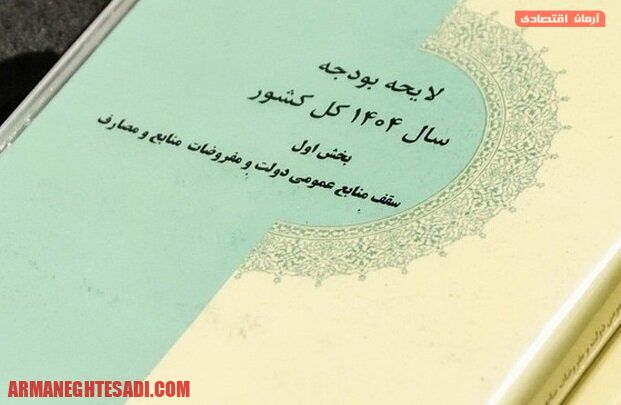 آرمان اقتصادی
لایحه بودجه
سال ۱۴۰۴ کل کشور
بخش اول
سقف منابع عمومی دولت و مفروضات منابع و مصارف
ARMANEGHTESADI.COM
دولت و مفروضات